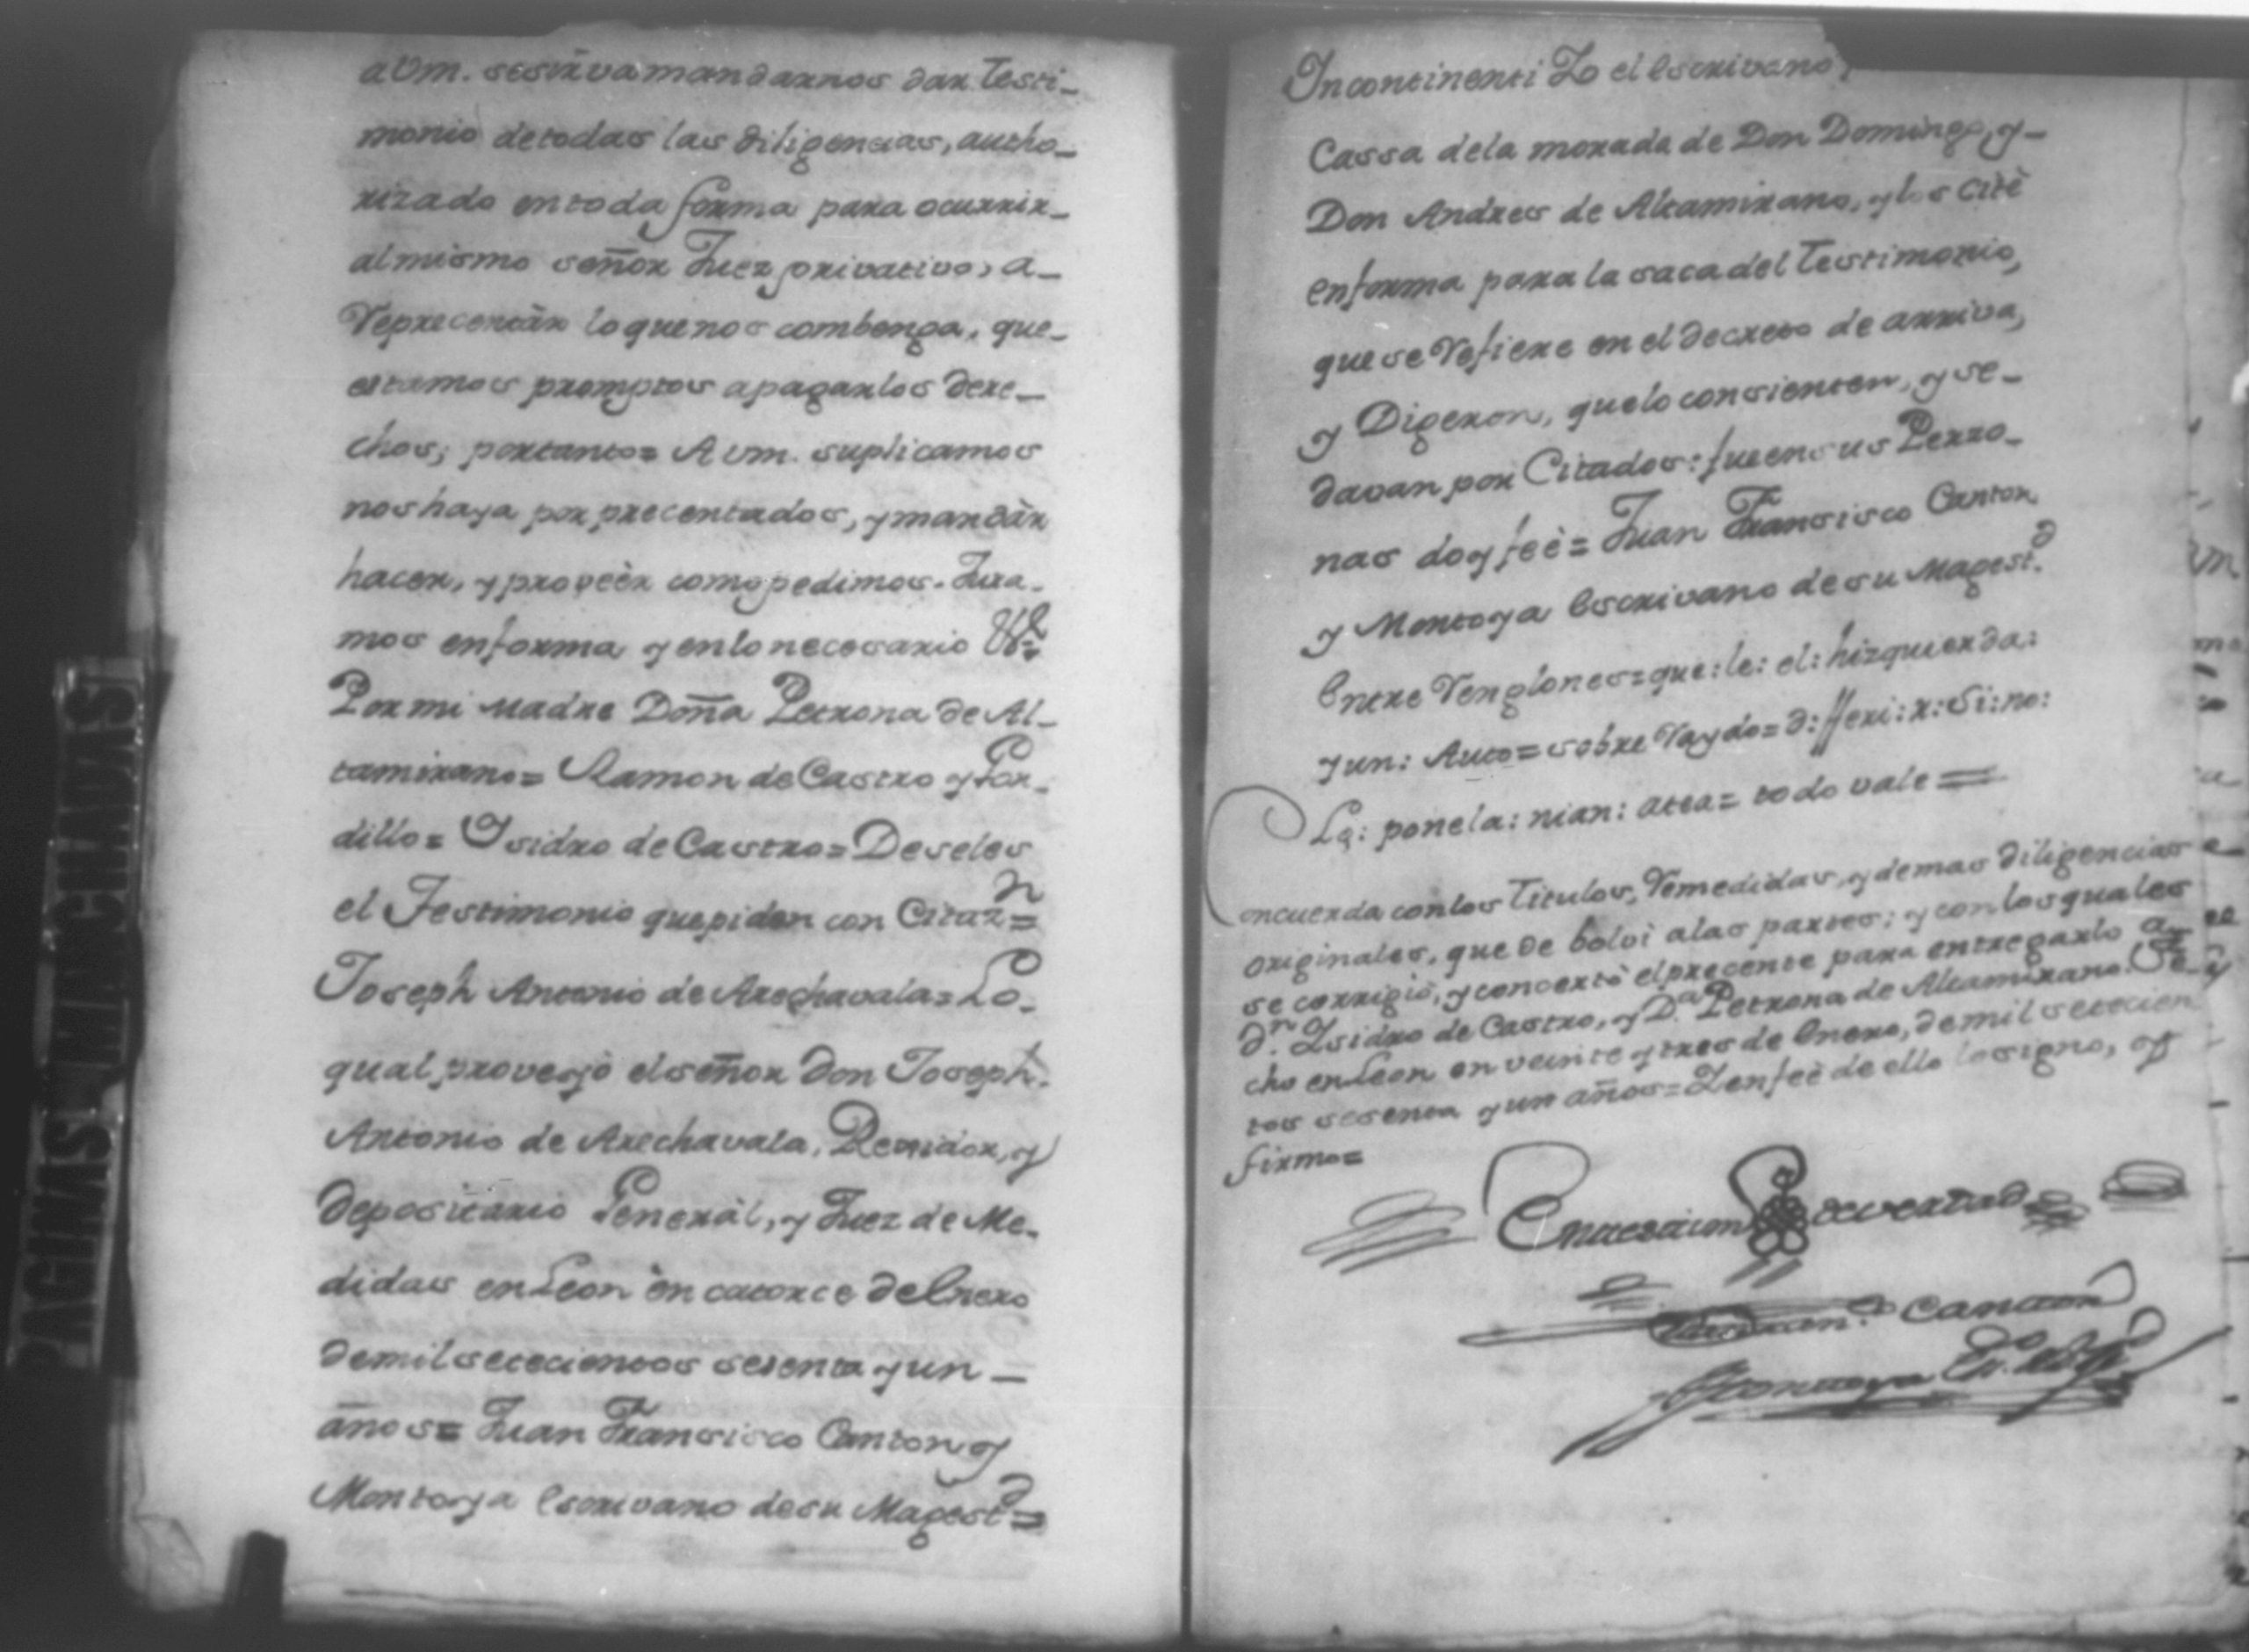 aVm. sesirva mandarnos dar testi-
monio de todas las diligencias, autho-
rizado en toda forma para ocurrir-
al mismo señor Juez privativo, a-
Reprecentàr lo que nos combenga, que-
estamos promptos a pagar los dere-
chos; portanto= A vm. suplicamos
nos haya por precentados, y mandàr
hacer, y proveèr como pedimos. Jura-
mos enforma y enlo necesario &ª
Por mi Madre Doña Petrona de Al-
tamirano= Ramon de Castro y Gor-
dillo= Ysidro de Castro= Deseles
el Testimonio que piden con Citaz.n=
Joseph Antonio de Arechavala= Lo-
qual proveyò el señor Don Joseph
Antonio de Arechavala, Regidor, y
Depositario General, y Juez de Me-
didas en Leon en catorce de Enero
de mil setecientos sesenta y un -
años= Juan Fransisco Canton y
Montoya Escrivano de su Magest.d=
Incontinenti Yo el Escrivano,
Cassa de la morada de Don Domingo, y-
Don Andres de Altamirano, y los Citè
enforma para la saca del Testimonio,
que se Refiere en el decreto de arriva,
y Digeron, que lo consienten, y se-
davan por Citados: fue en sus Perzo-
nas doy feè= Juan Fransisco Canton
y Montoya Escrivano de su Magest.d
Entre Renglones= que: le: el: hizquierda:
y un: Auto= sobre Raydo= d: ffexi: r: Si: no:
Lq: ponela: nian: atea= todo vale=
Concuerda con los Titulos, Remedidas, y demas diligencias
originales, que de bolvi a las partes; y con los quales
se corrigiò, y concertò el precente para entregarlo a
d.n Ysidro de Castro, y D.a Petrona de Altamirano. Fe-
cho en Leon en veinte y tres de Enero, de mil setecien
tos sesenta y un años= Y en feè de ello lo signo, y
firmo=
En testimonio de verdad
Juan Fran.co Canton
y Montoya